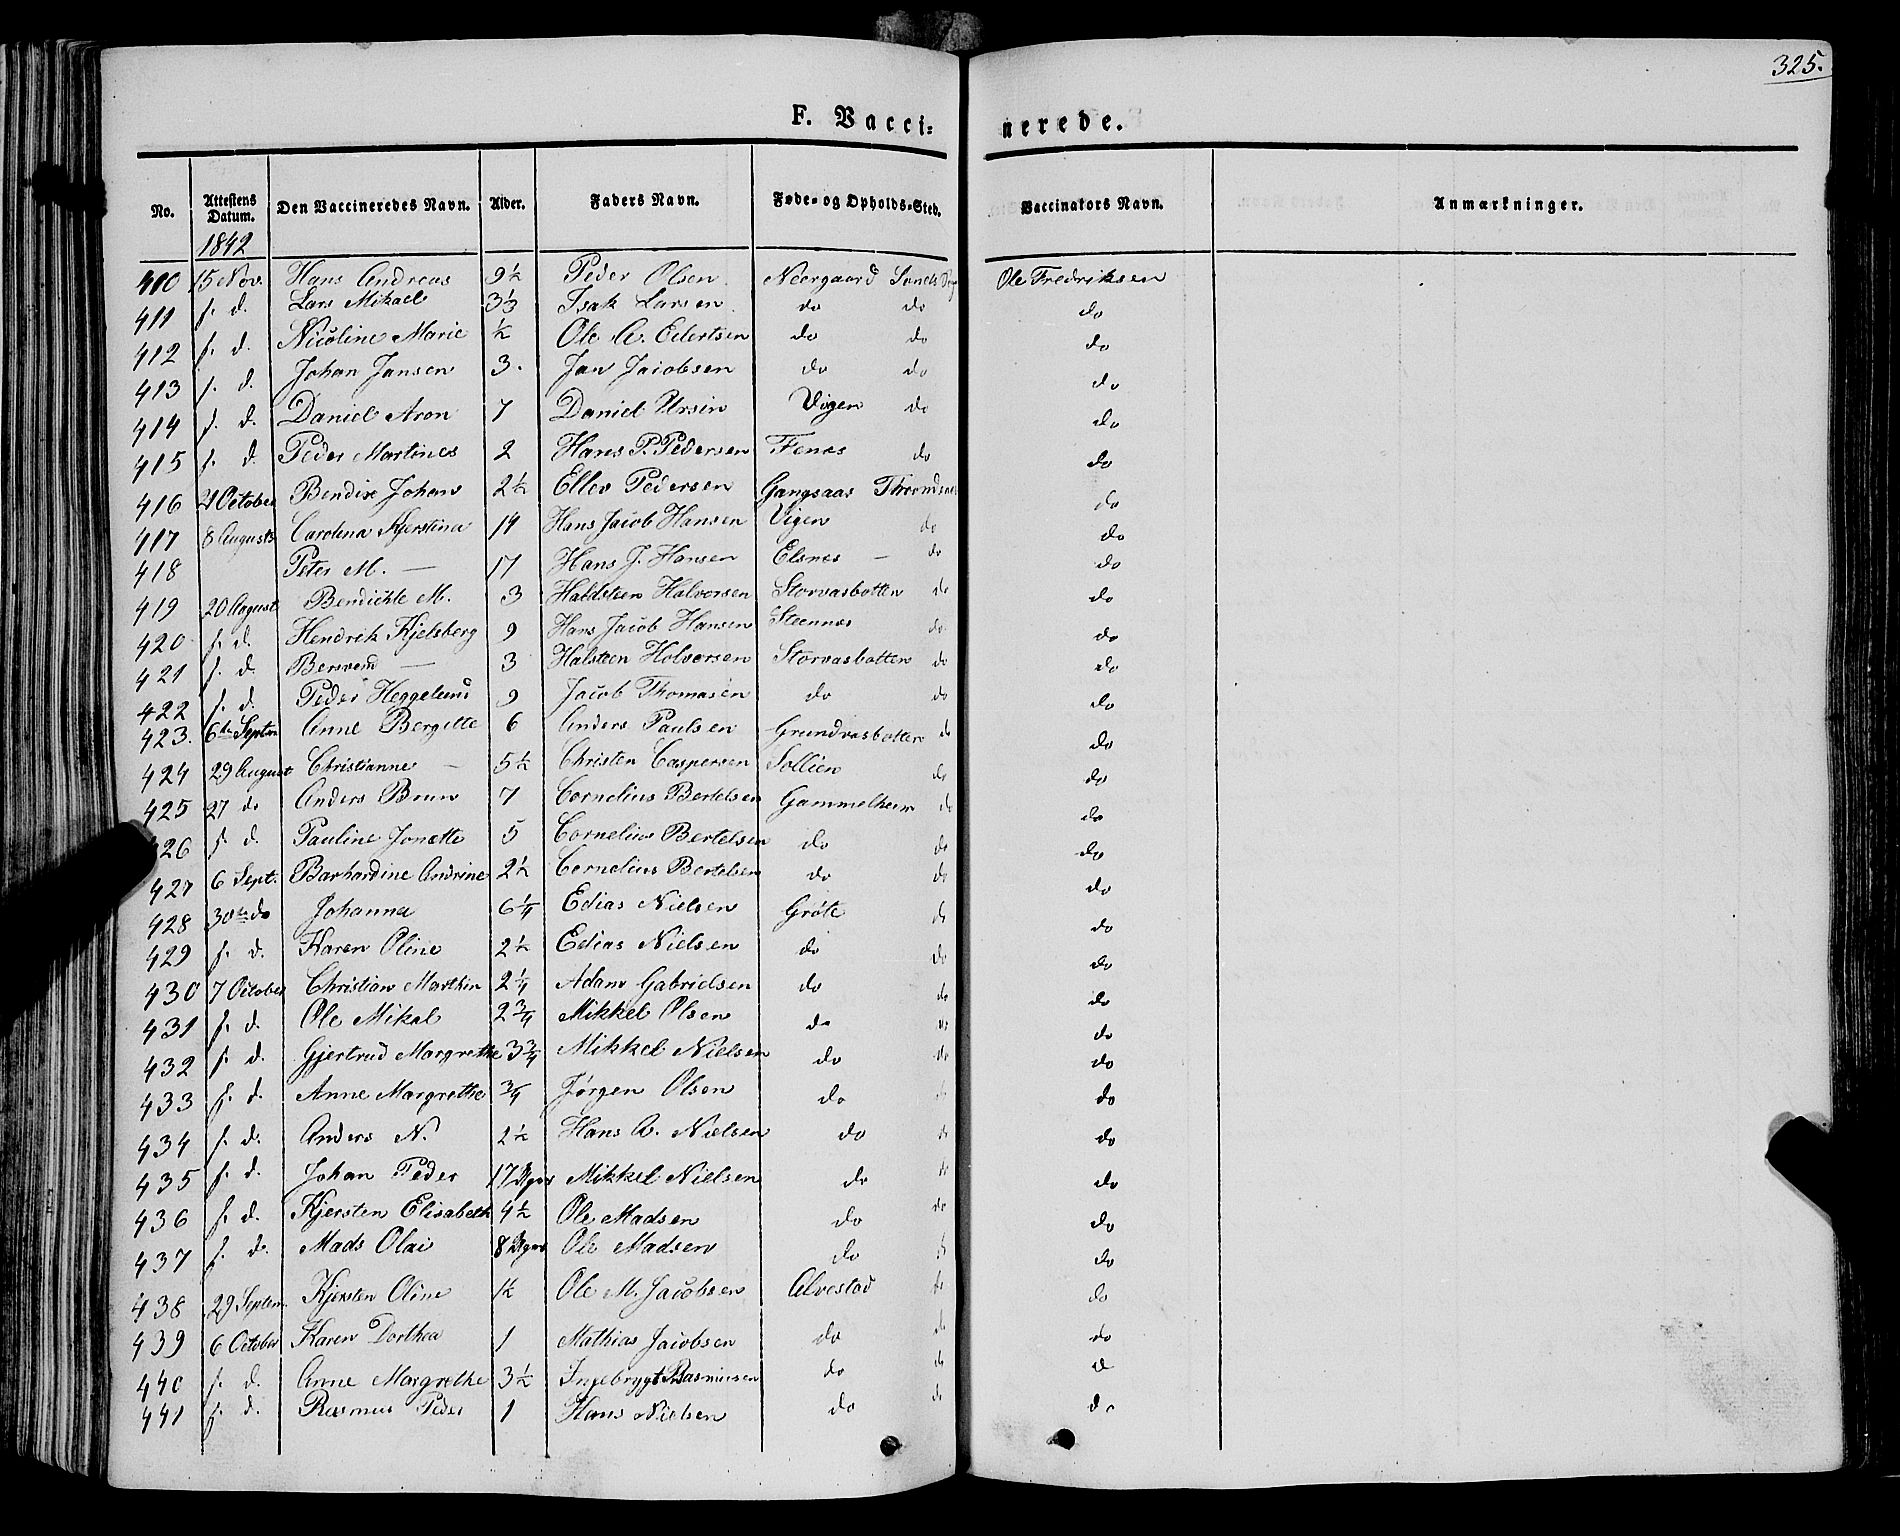 325.
F. Vacci=nerede.
No. Attestens Datum. Den Vaccineredes Navn. Alder. Faders Navn. Føde- og Opholds-Sted. Vaccinators Navn. Anmærkninger.
1842
410 15 Nov. Hans Andreas 9½ Peder Olsen Neergaard Sands Ole Fredriksen
411 s. d. Lars Mikael 3⅓ Isak Larsen do do do
412 s. d. Nicoline Marie ½ Ole A. Edertsen do do do
413 s. d. Johan Jansen 3. Jan Jacobsen do do do
414 s. d. Daniel Aron 7 Daniel Ursin Vigen do do
415 s. d. Peder Martines 2 Hans P. Pedersen Fenes do do
416 21 October Bendix Johan 2½ Ellev Pedersen Gangsaas do
417 8 August Carolena Kjerstina 14 Hans Jacob Hansen Vigen do do
418 Peter M. — 17 Hans J. Hansen Elsnes — do do
419 20 August Bendichte M. 3 Haldsteen Halvorsen Storvasbotten do do
420 s. d. Hendrik Kjelsberg 9 Hans Jacob Hansen Steennes do do
421 s. d. Bersvend — 3 Halsteen Holvorsen Storvasbotten do do
422 s. d. Peder Heggelund 9 Jacob Thomasen do do do
423. 6te Septm Anne Bergitte 6 Anders Paulsen Grundvasbotten do do
424 29 August Christianne — 5½ Christen Caspersen Sollien do do
425 27 do Anders Brun 7 Cornelius Bertelsen Gammelheim do do
426 s. d. Pauline Jonette 5 Cornelius Bertelsen do do do
427 6 Sept. Barhardine Andrine 2½ Cornelius Bertelsen do do do
428 30te do Johanna 6¼ Edias Nielsen Grøte do do
429 s. d. Karen Oline 2½ Edias Nielsen do do do
430 7 October Christian Marthin 2¼ Adam Gabrielsen do do do
431 s. d. Ole Mikal 2¾ Mikkel Olsen do do do
432 s. d. Gjertrud Margrethe 3¾ Mikkel Nielsen do do do
433 s. d. Anne Margrethe ¾ Jørgen Olsen do do do
434 s. d. Anders N. 2½ Hans A. Nielsen do do do
435 s. d. Johan Peder 17 Ugers Mikkel Nielsen do do do
436 s. d. Kjersten Elisabeth 4½ Ole Madsen do do do
437 s. d. Mads Olai 8 Ugers Ole Madsen do do do
438 29 Septem. Kjersten Oline 1½ Ole M. Jacobsen Alvestad do do
439 6 October Karen Dorthea 1 Mathias Jacobsen do do do
440 s. d. Anne Margrethe 3½ Ingebrygt Rasmusen do do d
441 s. d. Rasmus Peder 1 Hans Nielsen do do do